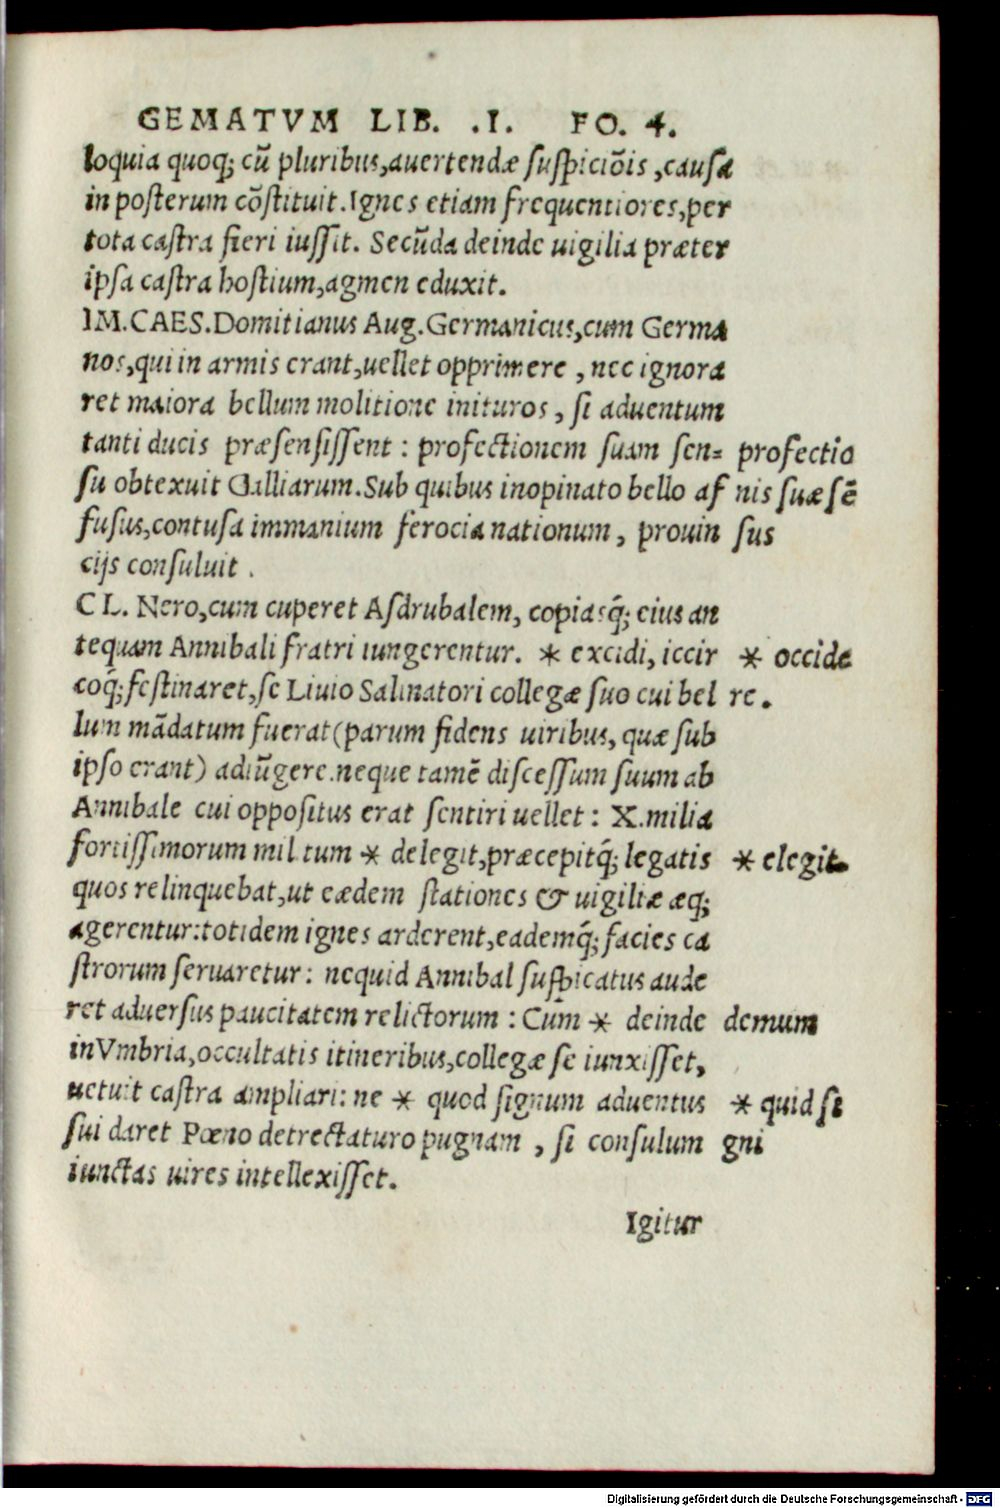 GEMATVM LIB. .I. FO. 4.
loquia quoq; cũ pluribus,auertendæ suſpiciõis ,cauſa
in poſterum cõſtituit.Ignes etiam frequentiores,per
tota caſtra fieri iuſſit. Secũda deinde uigilia præter
ipſa caſtra hoſtium,agmen eduxit.
IM.CAES.Domitianus Aug.Germanicus,cum Germa
nos,qui in armis erant,uellet opprimere , nec ignora
ret maiora bellum molitione inituros , ſi aduentum
tanti ducis præſenſiſſent : profectionem ſuam ſen=
ſu obtexuit Galliarum.Sub quibus inopinato bello af
fuſus,contuſa immanium ferocia nationum , prouin
cijs conſuluit .
profectio
nis ſuæ ſẽ
ſus
CL. Nero,cum cuperet Aſdrubalem, copiasq̃; eius an
tequam Annibali fratri iungerentur. * excidi, iccir
coq̃;feſtinaret,ſe Liuio Salinatori collegæ ſuo cui bel
* occide
re.
lum mãdatum fuerat(parum fidens uiribus, quæ ſub
ipſo erant) adiũgere.neque tamẽ diſceſſum ſuum ab
Annibale cui oppoſitus erat ſentiri uellet : X.milia
fortiſſimorum militum * delegit,præcepitq̃; legatis
* elegit.
quos relinquebat,ut eædem ſtationes & uigiliæ æq;
agerentur:totidem ignes arderent,eademq̃; facies ca
ſtrorum ſeruaretur : nequid Annibal ſuſpicatus aude
ret aduerſus paucitatem relictorum : Cum * deinde
demum
inVmbria,occultatis itineribus,collegæ ſe iunxiſſet,
uetuit caſtra ampliari: ne * quod ſignum aduentus
ſui daret Pœno detrectaturo pugnam , ſi conſulum
* quid ſi
gni
iunctas uires intellexiſſet.
Igitur
Digitalisierung gefördert durch die Deutsche Forschungsgemeinschaft - DFG